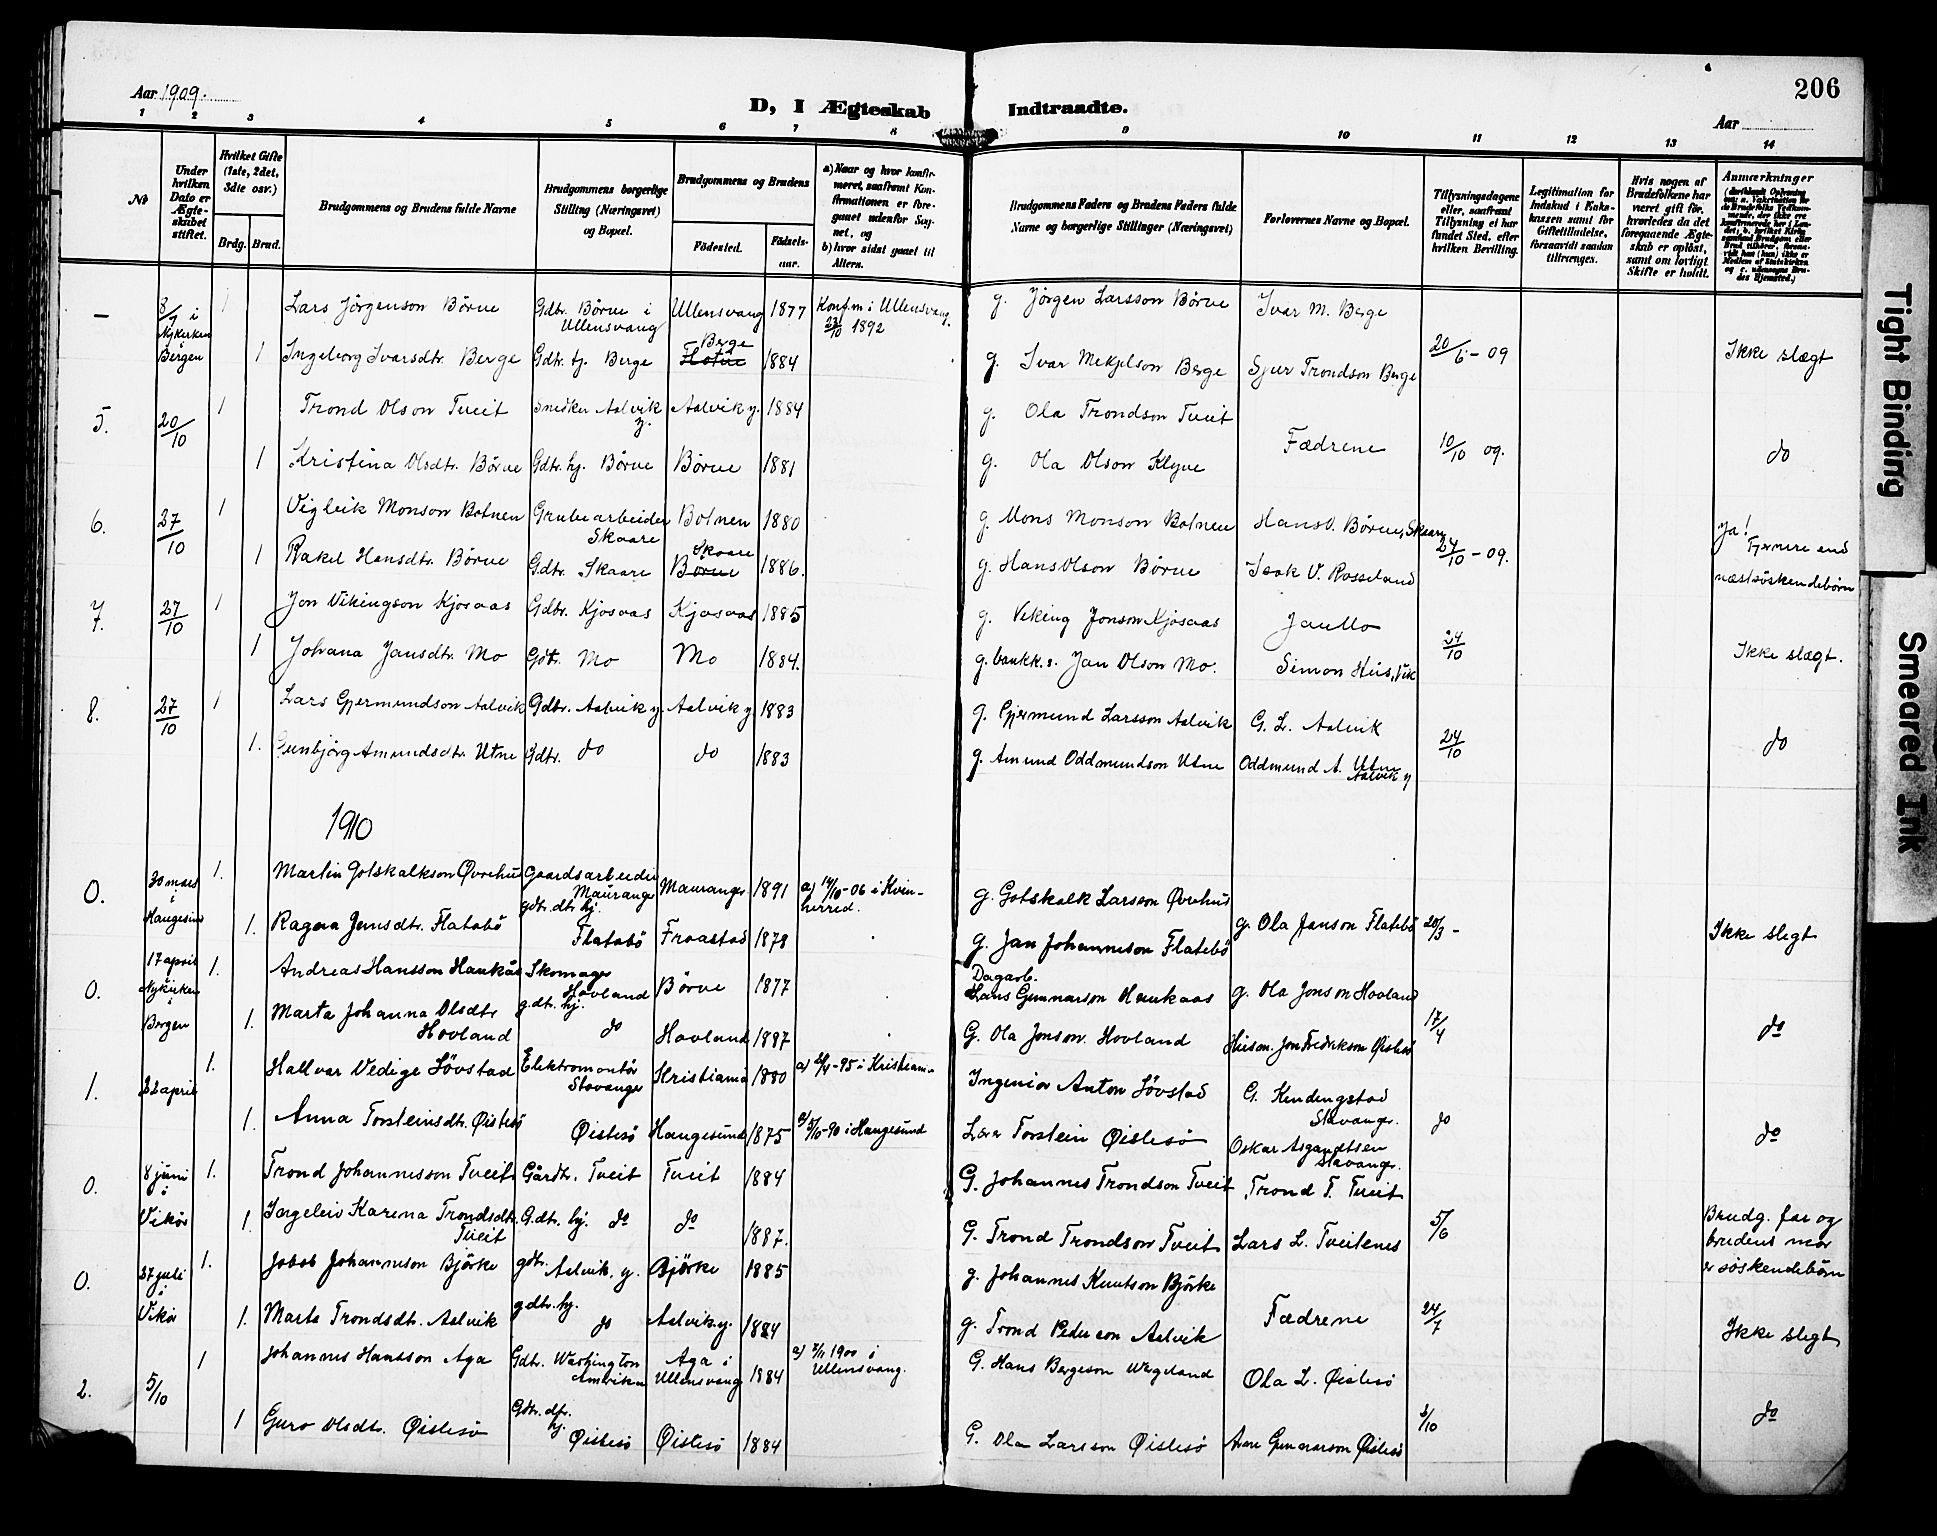 206
Aar 1909.
D, I Ægteskab Indtraadte.
Aar
1 2 3 4 5 6 7 8 9 10 11 12 13 14
No
Under hvilken Dato er Ægteskabet stiftet.
Hvilket Gifte (1ste, 2det, 3die osv.)
Brdg. Brud.
Brudgommens og Brudens fulde Navne
Brudgommens borgerlige Stilling (Næringsvei) og Bopæl.
Brudgommens og Brudens
Fødested.
Fødsels-aar.
a) Naar og hvor konfirmeret, saafremt Konfirmationen er foregaaet udenfor Sognet, og
b) hvor sidst gaaet til Alters.
Brudgommens Faders og Brudens Faders fulde Navne og borgerlige Stillinger (Næringsvei)
Forlovernes Navne og Bopæl.
Tillysningsdagene eller, saafremt Tillysning ei har fundet Sted, efter hvilken Bevilling.
Legitimation for Indskud i Enkekassen samt for Giftetilladelse, forsaavidt saadan tiltrænges.
Hvis nogen af Brudefolkene har været gift før, hvorledes da det foregaaende Ægteskab er opløst, samt om lovligt Skifte er holdt.
Anmærkninger
— 8/7 i Nykirken Bergen 1 Lars Jörgenson Börve Gdbr. Börve i Ullensvang Ullensvang 1877 Konfm i Ullensvang 23/10 1892 g. Jörgen Larsson Börve Ivar M. Berge
1 Ingeborg Ivarsdtr. Berge Gdtr. hj. Berge Berge 1884 g. Ivar Mekjelson Berge Sjur Trondson Berge 20/6 - 09 Ikke slægt
5. 20/10 1 Trond Olson Tveit Snedker Aalvik y. Aalvik y. 1884 g. Ola Trondson Tveit Fædrene 10/10 09. do
1 Kristina Olsdtr. Börve Gdtr. hj. Börve Börve 1881 g. Ola Olson Klyve
6. 27/10 1 Vigleik Monson Botnen Grubearbeider Skaare Botnen 1880 g. Mons Monson Botnen Hans O. Börve, Skaare 24/10 - 09. Ja! Fjernere end næstsöskendebörn
1 Rakel Hansdtr. Börve Gdtr. Skaare Skaare Börve 1886. g. Hans Olson Börve Isak V. Rosseland
7. 27/10 1 Jon Vikingson Kjosaas Gdbr. Kjosaas Kjosaas 1885 g. Viking Jonson Kjosaas Jan Mo 24/10 Ikke slægt.
1 Johana Jansdtr. Mo Gdtr. Mo Mo 1884. g. bankk. s. Jan Olson Mo. Simon Hus, Vik
8. 27/10 1 Lars Gjermundson Aalvik Gdbr. Aalvik y Aalvik y 1883 g. Gjermund Larsson Aalvik G. L. Aalvik 24/10 do
1. Gunbjörg Amundsdtr. Utne Gdtr. do do 1883 g. Amund Oddmundson Utne Oddmund A. Utne Aalvik y
1910
0. 30 mars i Haugesund 1. Martin Gotskalkson Øvrehus Gaardsarbeider Mauranger Mauranger 1891 a) 14/10-06 i Kvinherred. g. Gotskalk Larsson Øvrehus
1. Ragna Jansdtr. Flatebö gdtr. dtr hj. Flatabö Fraastad 1878 g. Jan Johannesson Flatebö g. Ola Janson Flatebö 20/3 - Ikke slegt
0. 17 april Nykirken i Bergen 1. Andreas Hansson Haukås Skomager Hovland Börve 1877 Dagarb. Hans Gunnarson Haukaas g. Ola Jonson Hovland
1. Marta Johanna Olsdtr Hovland g.dtr. hj. do Hovland 1887 G. Ola Jonson Hovland Husm. Jon Fredrikson Øistesö 17/4 do
1. 22 april 1. Hallvar Vedige Lövstad Elektromontör Stavanger Kristiania 1880 a) 2/4-95 i Kristiania Ingeniör Anton Lövstad G. Kendingstad Stavanger.
1. Anna Torsteinsdtr. Øistesö Øistesö Haugesund 1875 a) 5/10-90 i Haugesund Lærer Torstein Øistesö Oskar Asgaudtsen Stavanger. do do
0. 8 juni i Vikör 1. Trond Johannesson Tveit Gårdbr. Tveit Tveit 1884 G. Johannes Trondson Tveit Trond T. Tveit
1. Ingeleiv Karena Trondsdtr. Tveit G.dtr. hj. do do 1887. G. Trond Trondson Tveit Lars L. Tveitenes 5/6 Brudg. far og brudens mor er söskendebörn
0. 27 juli i Vikör 1. Jakob Johanneson Björke gdbr. Aalvik. y. Björke 1885 g. Johannes Knutson Björke
1. Marta Trondsdtr. Aalvik gdtr. hj. do Aalvik y. 1884 g. Trond Pederson Aalvik Fædrene 24/7 Ikke slegt
2. 5/10 1 Johannes Hansson Aga Gdbr. Washington Amerika Aga i Ullensvang 1884 a) 7/11 1900 i Ullensvang. G. Hans Bergeson Wegeland Ola L. Øistesö
1 Guro Olsdtr. Øistesö Gdbr. dtr. hj. Øistesö Øistesö 1884 G. Ola Larsson Øistesö Arne Gunnarson Øistesö 2/10 do
Tight Binding
Smeared Ink